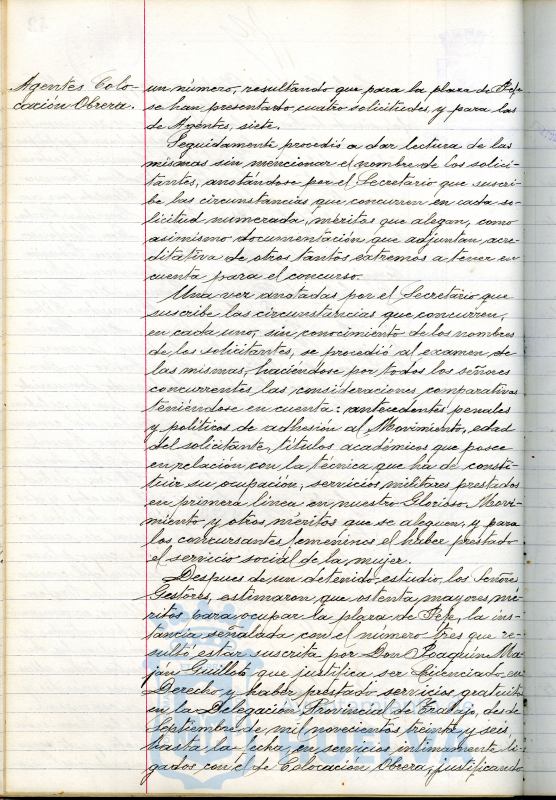 Agentes Colo-
cación Obrera.
un número, resultando que para la plaza de Jefe
se han presentado cuatro solicitudes, y para las
de Agentes, siete.
Seguidamente procedió a dar lectura de las
mismas sin mencionar el nombre de los solici-
tantes, anotándose por el Secretario que suscri-
be las circunstancias que concurren en cada so-
licitud numerada, méritos que alegan, como
asimismo documentación que adjuntan acre-
ditativa de otros tantos extremos a tener en
cuenta para el concurso.
Una vez anotadas por el Secretario que
suscribe las circunstancias que concurren,
en cada uno, sin conocimiento de los nombres
de los solicitantes, se procedió al examen de
las mismas, haciéndose por todos los señores
concurrentes las consideraciones comparativas
teniéndose en cuenta: antecedentes penales
y políticos de adhesión al Movimiento, edad
del solicitante, títulos académicos que posee
en relación con la técnica que ha de consti-
tuir su ocupación, servicios militares prestados
en primera línea en nuestro Glorioso Movi-
miento y otros méritos que se aleguen, y para
los concursantes femeninos el haber prestado
el servicio social de la mujer.
Despues de un detenido estudio, los Señores
Gestores, estimaron que ostenta mayores mé-
ritos para ocupar la plaza de Jefe, la ins-
tancia señalada con el número tres que re-
sultó estar suscrita por Don Joaquín Ma-
jan Guilloto que justifica ser Licenciado en
Derecho y haber prestado servicios gratuitos
en la Delegación Provincial de Trabajo, desde
Septiembre de mil novecientos treinta y seis
hasta la fecha, en servicios intimamente li-
gados con el de Colocación Obrera, justificando